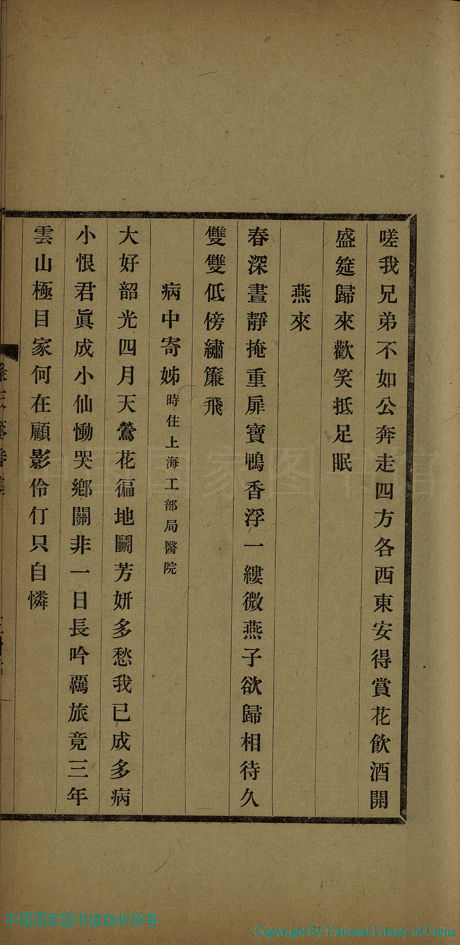 嗟我兄弟不如公奔走四方各西東安得賞花飲酒開
盛筵歸來歡笑抵足眠
燕來
春深晝靜掩重扉寶鴨香浮一縷微燕子欲歸相待久
雙雙低傍繡簾飛
病中寄姊時住上海工部局醫院
大好韶光四月天鶯花徧地鬬芳妍多愁我已成多病
小恨君眞成小仙慟哭鄉關非一日長吟羈旅竟三年
雲山極目家何在顧影伶仃只自憐
Copyright By National Library of China